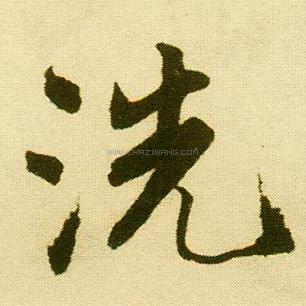 洗
WWW.CHAZIWANG.COM